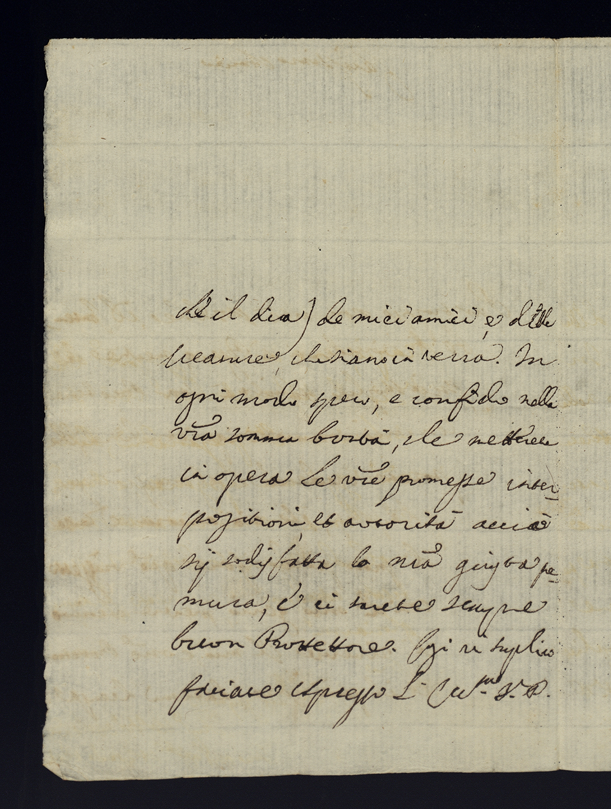 che il dica) de miei amici, e delle
creature, che siano in terra. In
ogni modo spero, e confido nella
vra somma bontà, che metterete
in opera le vre promesse inter-
positioni, et autorità acciò
sij sodisfatta la mia giusta pre-
mura, e ci sarete sempre
buon Protettore. Poi vi suplico
faciate appresso L.